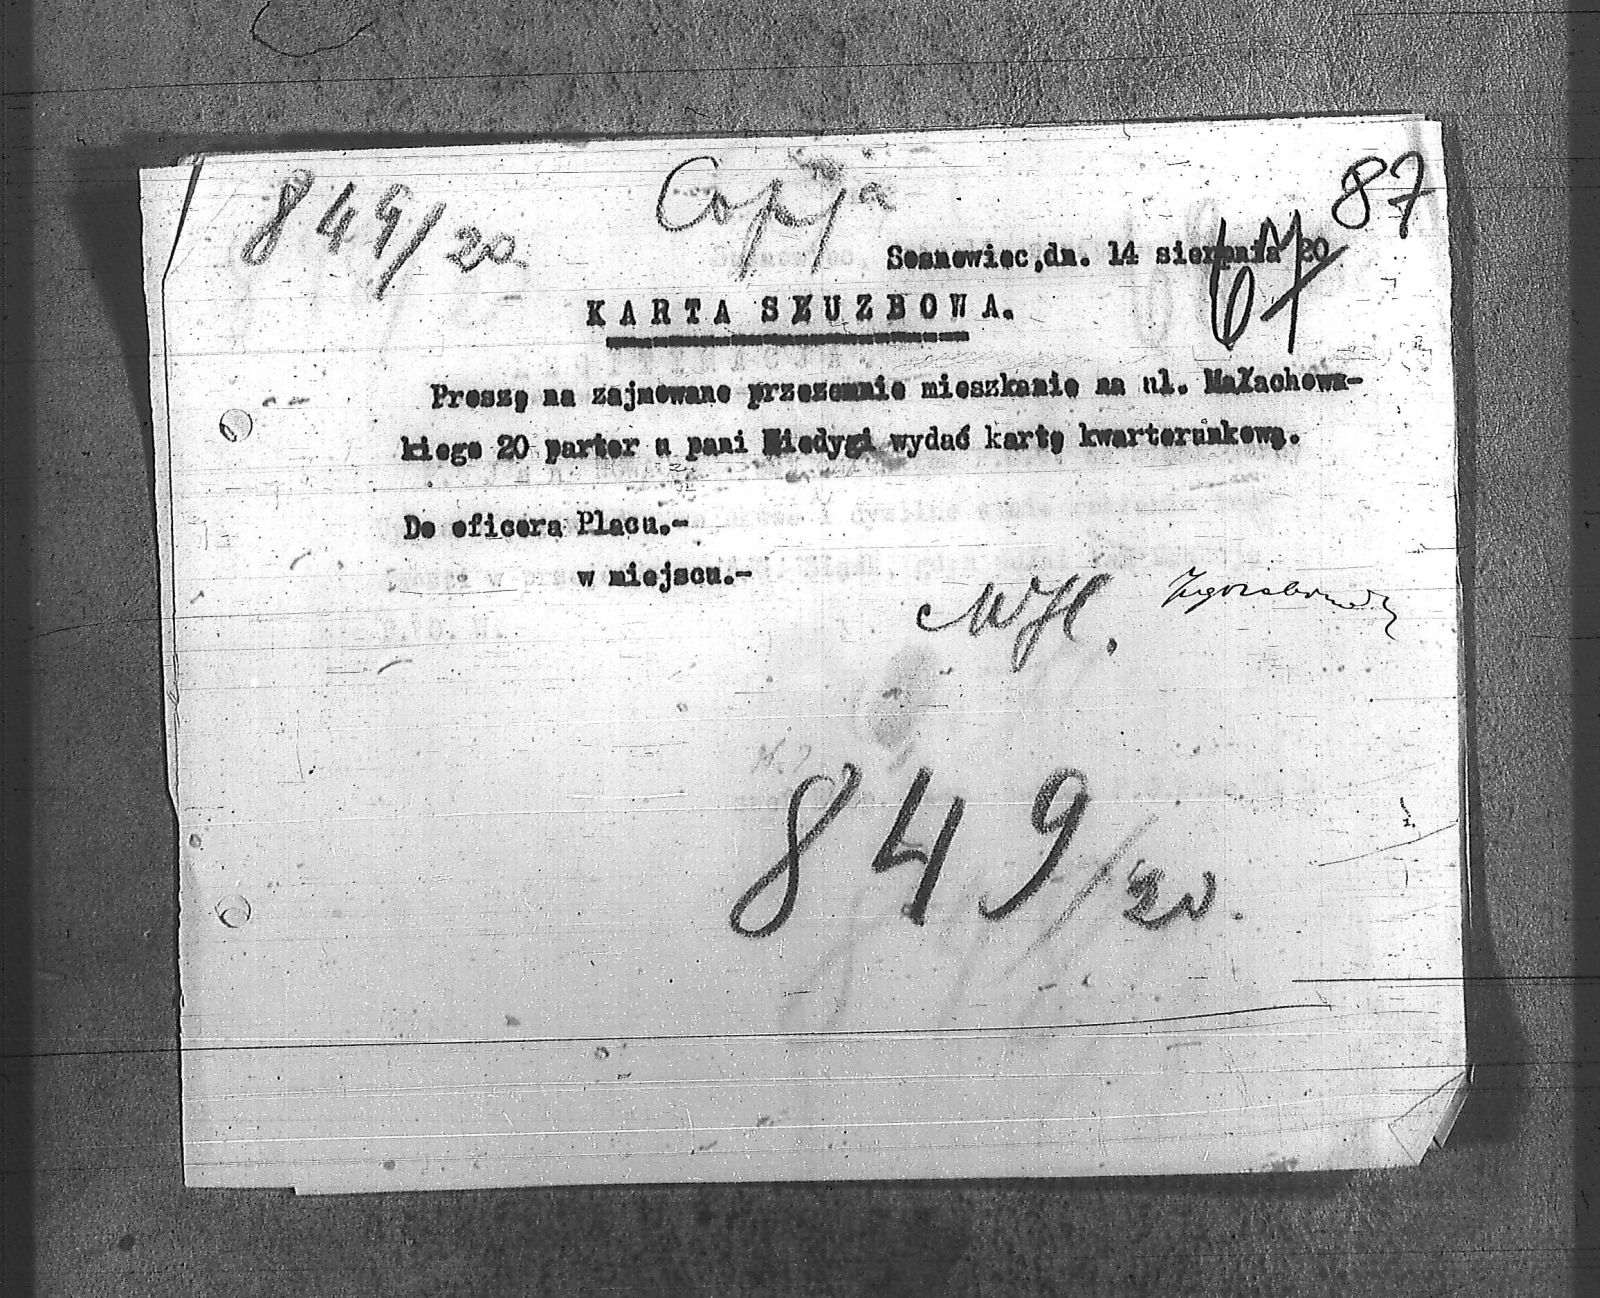 87
849/20
Copja
Sosnowiec,dn. 14 sierpnia 20
67
KARTA SŁUZBOWA.
Proszę na zajmowane przezemnie mieszkanie na ul. Małachows-
kiego 20 parter u pani Niedygi wydać kartę kwarterunkową.
Do oficera Placu.-
w miejscu.-
849/20.